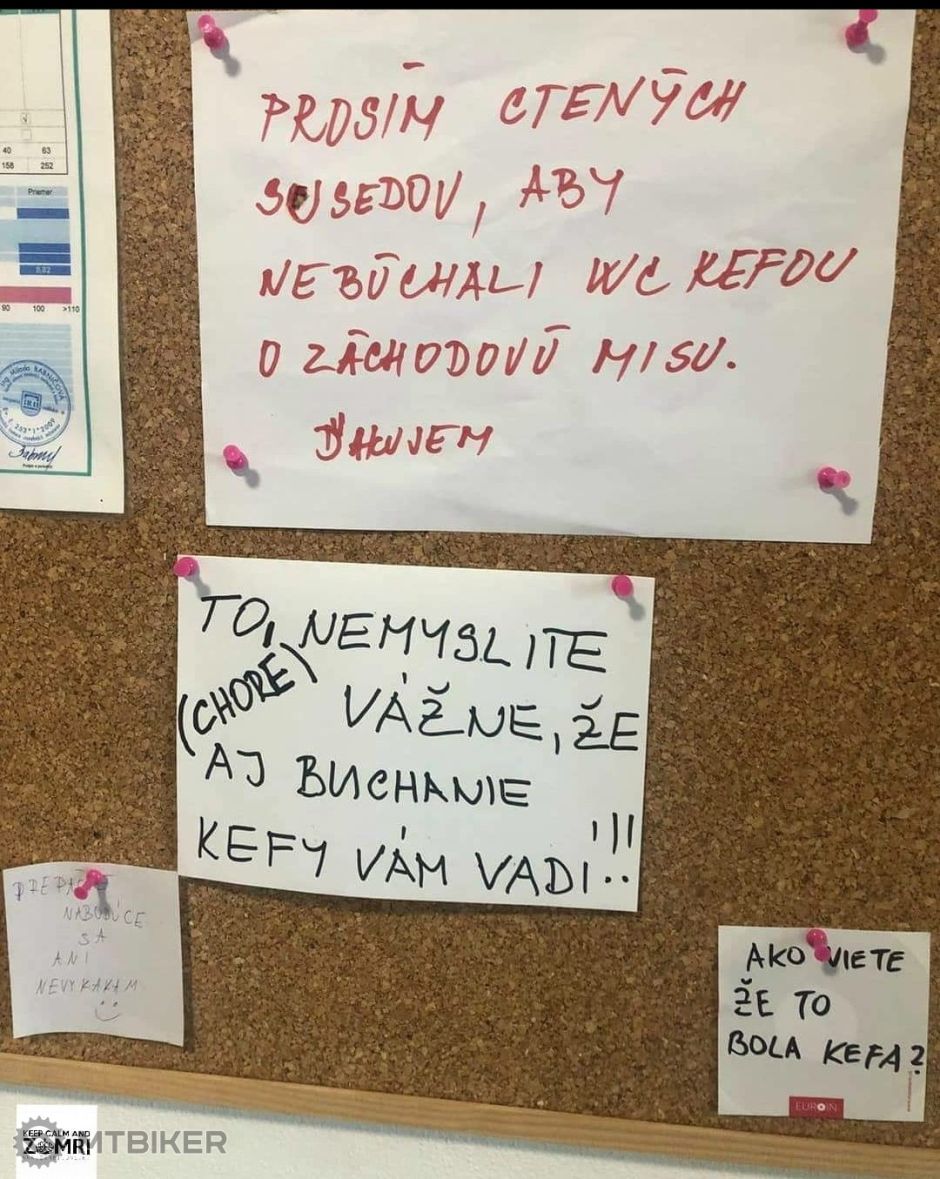 40 63
158 252
Priemer
90 100 >110
PROSÍM CTENÝCH
SUSEDOV, ABY
NEBÚCHALI WC KEFOU
O ZÁCHODOVÚ MISU.
ĎAKUJEM
TO, NEMYSLITE
(CHORÉ) VÁŽNE, ŽE
AJ BUCHANIE
KEFY VÁM VADI!!!
NABUDÚCE
SA
ANI
NEVYKAKAM
AKO VIETE
ŽE TO
BOLA KEFA?
EUROIN
KEEP CALM AND
ZOMRI
MTBIKER